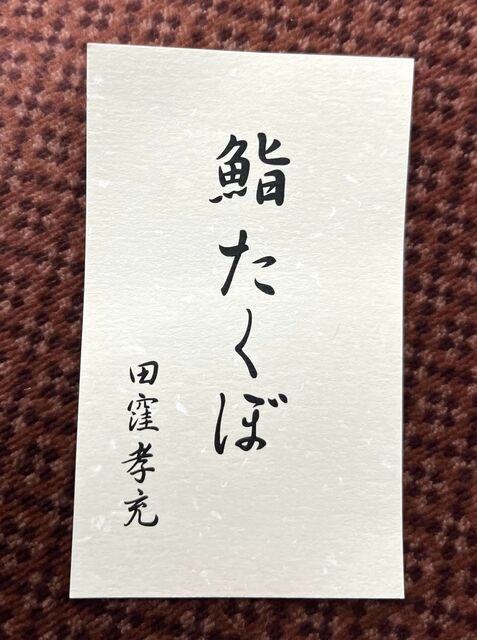 鮨たくぼ
田窪孝充